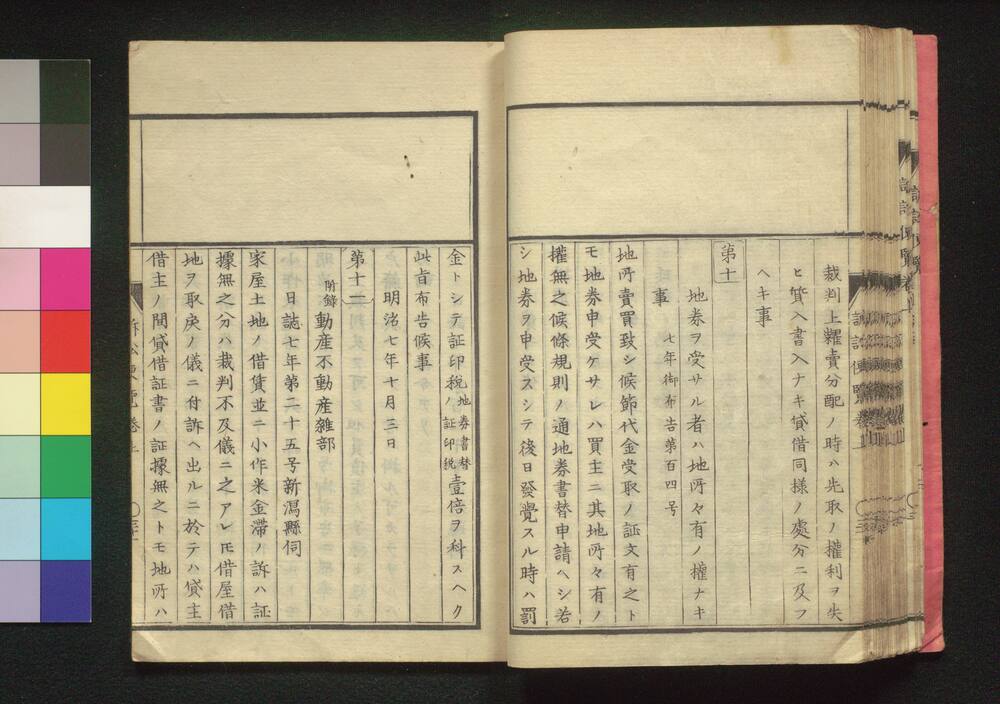 裁判上糶賣分配ノ時ハ先取ノ權利ヲ失
ヒ質入書入ナキ貸借同様ノ處分ニ及フ
ヘキ事
第十
地券ヲ受サル者ハ地所々有ノ權ナキ
事 七年御布告第百四号
地所賣買致シ候節代金受取ノ証文有之ト
モ地券申受ケサレハ買主ニ其地所々有ノ
權無之候條規則ノ通地券書替申請ヘシ若
シ地券ヲ申受スシテ後日發覺スル時ハ罰
金トシテ証印税地券書替ノ証印税壹倍ヲ科スヘク
此旨布告候事
明治七年十月三日
第十一
附録動産不動産雑部
日誌七年第二十五号新潟縣伺
家屋土地ノ借賃並ニ小作米金滞ノ訴ハ証
據無之分ハ裁判不及儀ニ之アレ𪜈借屋借
地ヲ取戻ノ儀ニ付訴ヘ出ルニ於テハ貸主
借主ノ間貸借証書ノ証據無之トモ地所ハ